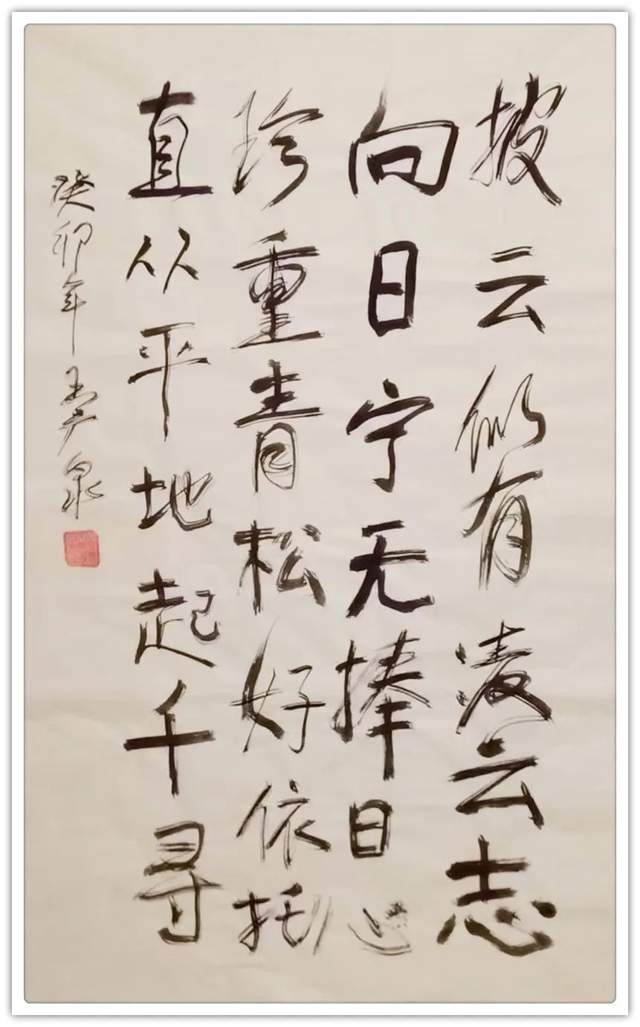 披云似有凌云志
向日宁无捧日心
珍重青松好依托
直从平地起千寻
癸卯年 王广泉